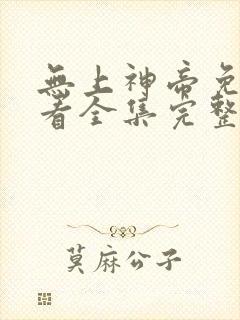 無上神帝免
看全集完整
莫麻公子